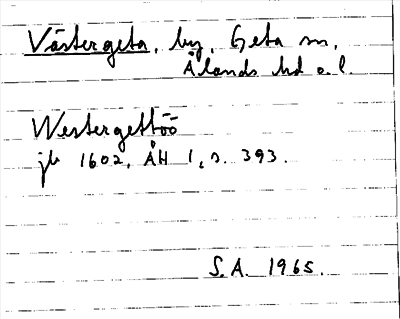 Västergeta, by, Geta sn,
Ålands hd o. l.
Westergettöö
jb 1602, ÅH 1, s. 393.
S.A. 1965.